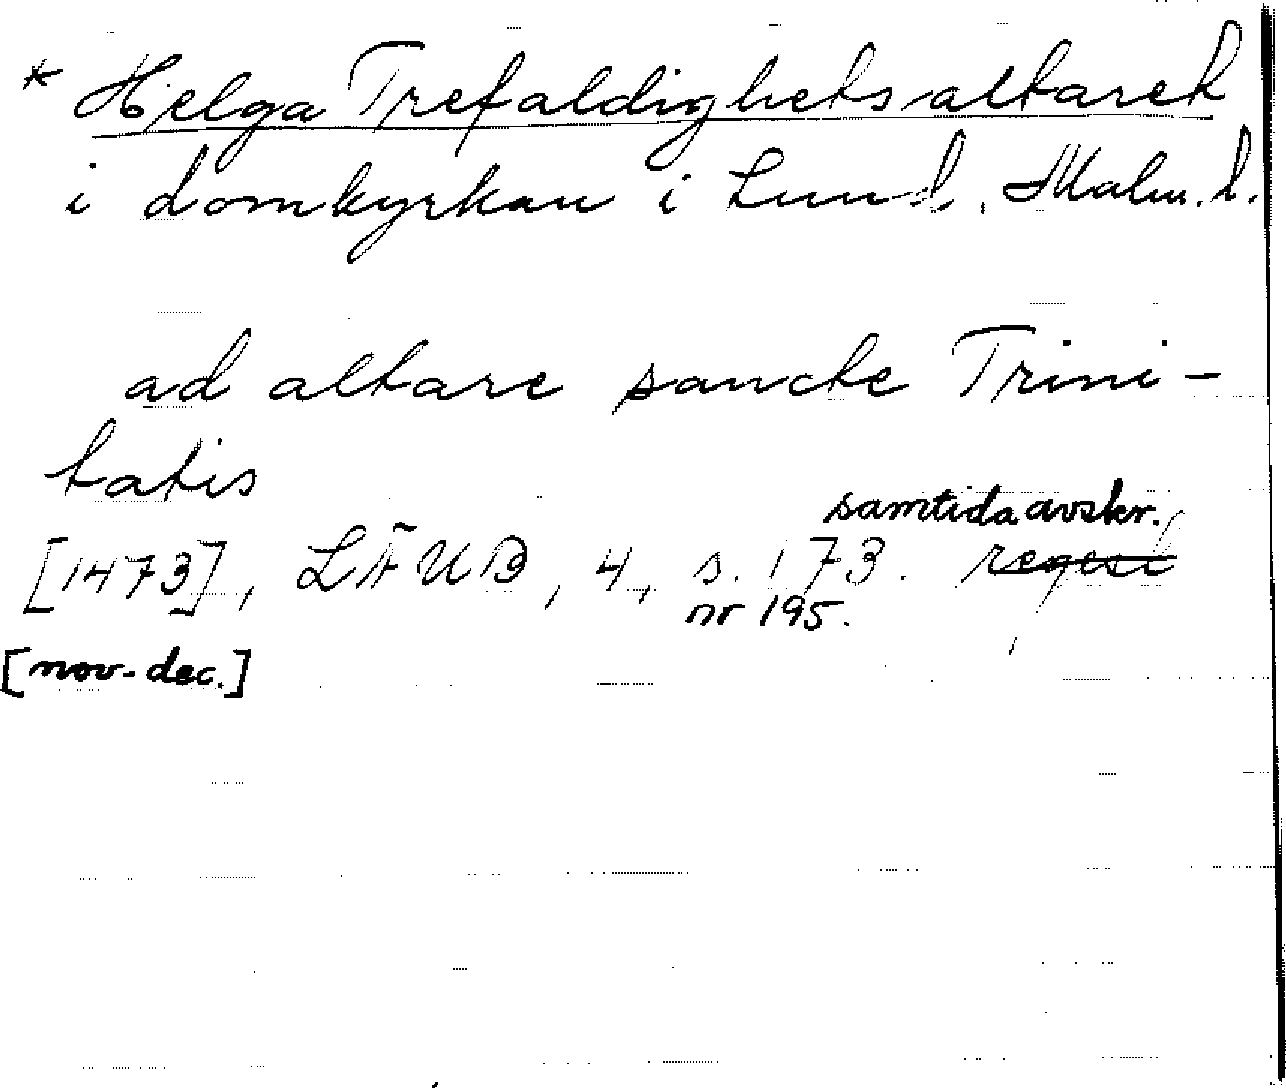 * Helga Trefaldighetsaltaret
i domkyrkan i Lund, Malm. l.
ad altare sancte Trini-
tatis
samtida avskr.
[1473], LÄUB, 4, s. 173. regest
nr 195.
[nov-dec.]